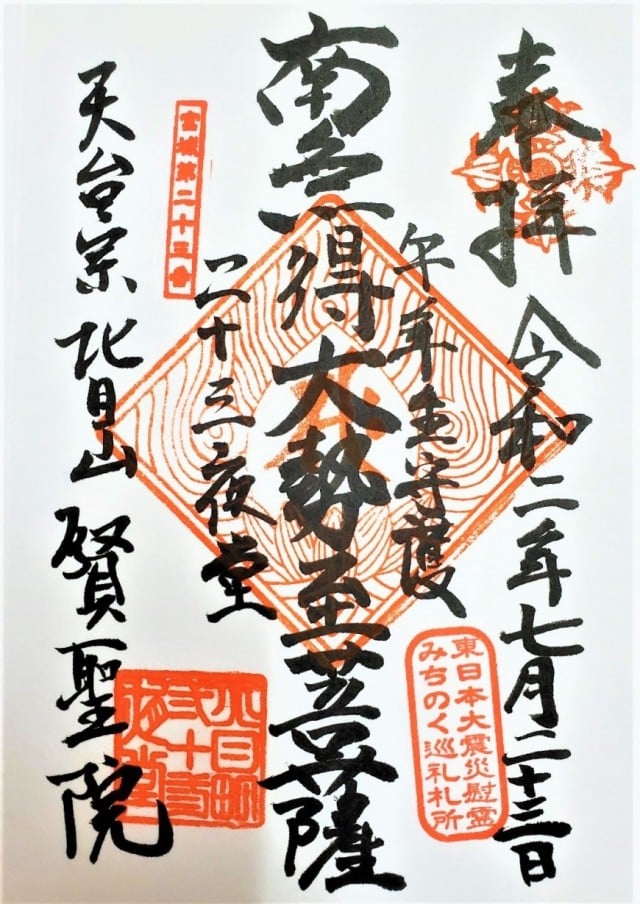 奉拝
令和二年七月二十三日
東日本大震災慰霊
みちのく巡礼札所
午年生守護
南無得大勢至菩薩
二十三夜堂
宮城第二十三番
天台宗 北日山 賢聖院